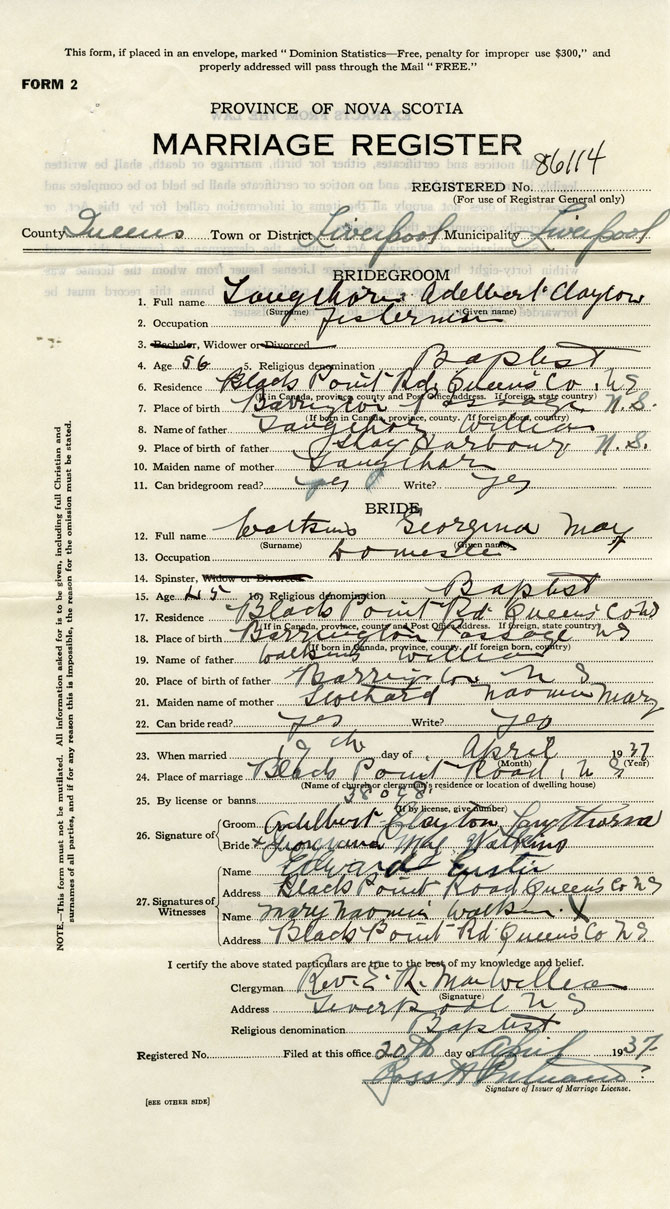 This form, if placed in an envelope, marked "Dominion Statistics—Free, penalty for improper use $300," and
properly addressed will pass through the Mail "FREE."
FORM 2
PROVINCE OF NOVA SCOTIA
MARRIAGE REGISTER
REGISTERED No. 86114
(For use of Registrar General only)
County Queens Town or District Liverpool Municipality Liverpool
BRIDEGROOM
1. Full name Langthorn Adelbert Clayton
(Surname) (Given name)
2. Occupation fisherman
3. Bachelor, Widower or Divorced
4. Age 56 5. Religious denomination Baptist
6. Residence Black Point Rd, Queens Co. N S
(If in Canada, province, county and Post Office address. If foreign, state country)
7. Place of birth Barrington Passage N.S.
(If born in Canada, province, county. If foreign born, country)
8. Name of father Langthorn William
9. Place of birth of father Harbour N.S.
10. Maiden name of mother Langthorn
11. Can bridegroom read? yes Write? yes
BRIDE
12. Full name Watkins Georgina May
(Surname) (Given name)
13. Occupation Domestic
14. Spinster, Widow or Divorced
15. Age 45 16. Religious denomination Baptist
17. Residence Black Point Rd Queens Co NS
(If in Canada, province, county and Post Office address. If foreign, state country)
18. Place of birth Barrington Passage NS
(If born in Canada, province, county. If foreign born, country)
19. Name of father Watkins William
20. Place of birth of father Barrington N S
21. Maiden name of mother Naomi Mary
22. Can bride read? yes Write? yes
23. When married 19 th day of April 1937
(Month) (Year)
24. Place of marriage Black Point Road, N S
(Name of church or clergyman's residence or location of dwelling house)
25. By license or banns
(If by license, give number)
26. Signature of Groom Adelbert Clayton Langthorn
Bride Georgina May Watkins
27. Signatures of Witnesses
Name Edward
Address Black Point Road Queen's Co NS
Name Mary Naomi Watkins X
Address Black Point Rd Queen's Co NS
I certify the above stated particulars are true to the best of my knowledge and belief.
Clergyman Rev. E. R. MacWilliam
(Signature)
Address Liverpool N S
Religious denomination Baptist
Registered No. Filed at this office 20th day of April 1937
Signature of Issuer of Marriage License.
[SEE OTHER SIDE]
NOTE.—This form must not be mutilated. All information asked for is to be given, including full Christian and
surnames of all parties, and if for any reason this is impossible, the reason for the omission must be stated.